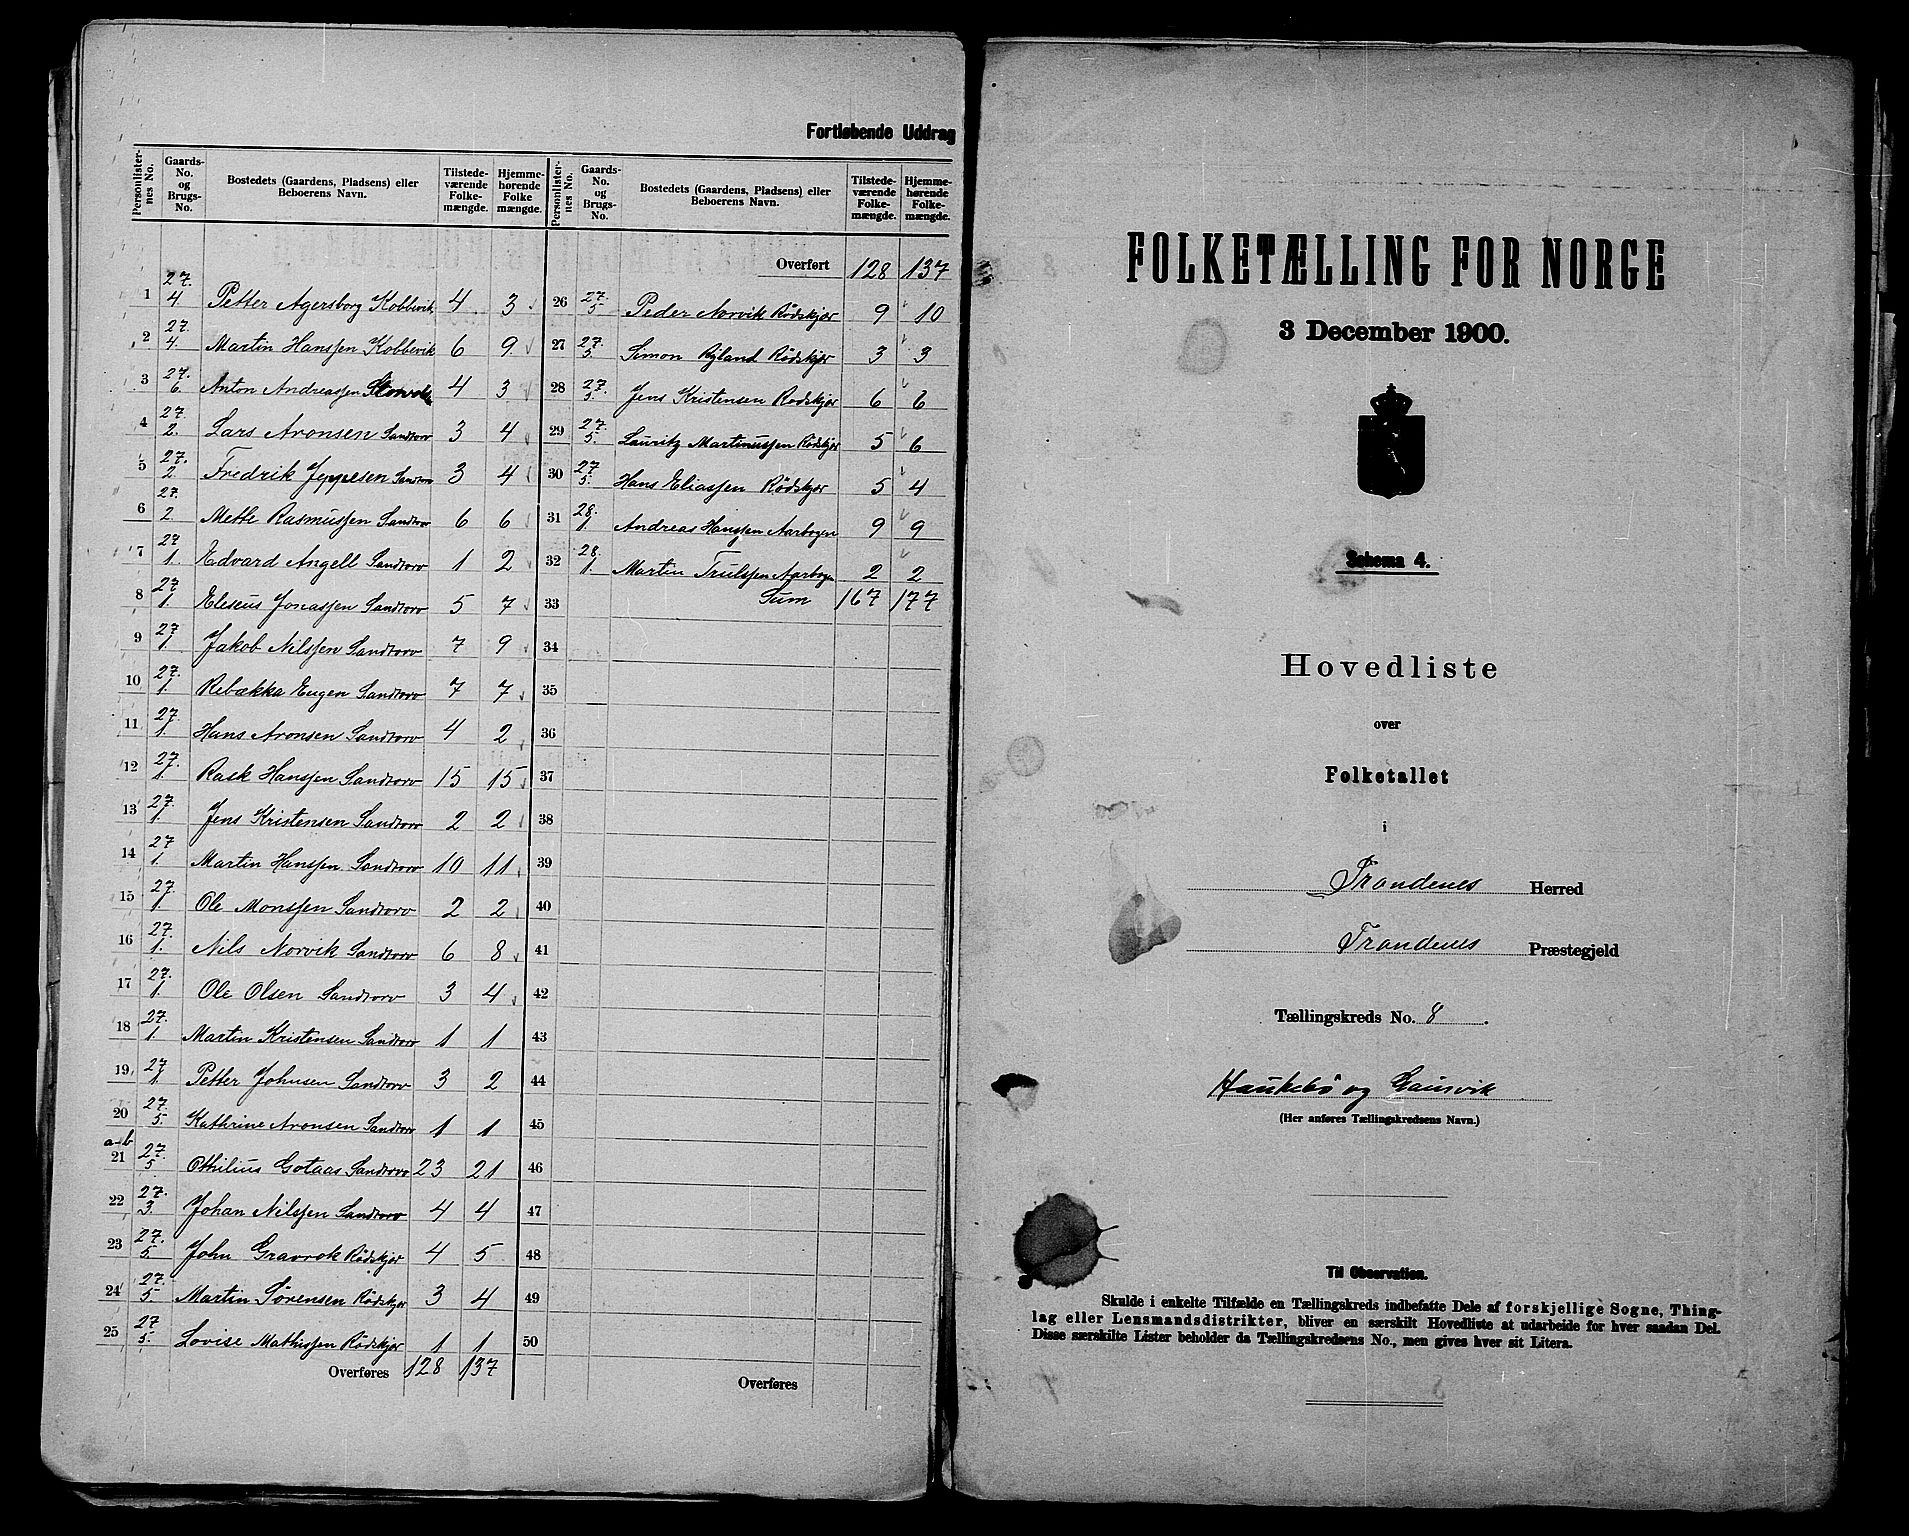 Fortløbende Uddrag
Personlisternes No. | Gaards-No. og Brugs-No. | Bostedets (Gaardens, Pladsens) eller Beboerens Navn. | Tilstedeværende Folkemængde. | Hjemmehørende Folkemængde. | Personlisternes No. | Gaards-No. og Brugs-No. | Bostedets (Gaardens, Pladsens) eller Beboerens Navn. | Tilstedeværende Folkemængde. | Hjemmehørende Folkemængde.
Overført 128 137
1 27. 4 Petter Agersborg Kobbevik 4 3
2 27. 4. Martin Hanssen Kobbevik 6 9
3 27. 6. Anton Andreassen 4 3
4 27. 2. Lars Aronsen Sandtorv 3 4
5 27. 2. Fredrik Jeppesen Sandtorv 3 4
6 27. 2. Mette Rasmussen Sandtorv 6 6
7 27 1. Edvard Angell Sandtorv 1 2
8 27 1. Eliseus Jonassen Sandtorv 5 7
9 27 1. Jakob Nilssen Sandtorv 7 9
10 27. 1. Rebækka Eugen Sandtorv 7 7
11 27. 1. Hans Aronsen Sandtorv 4 2
12 27. 1. Rask Hanssen Sandtorv 15 15
13 27. 1. Jens Kristensen Sandtorv 2 2
14 27 1. Martin Hanssen Sandtorv 10 11
15 27. 1. Ole Monssen Sandtorv 2 2
16 27. 1. Nils Norvik Sandtorv 6 8
17 27. 1. Ole Olsen Sandtorv 3 4
18 27. 1. Martin Kristensen Sandtorv 1 1
19 27 1. Petter Johnsen Sandtorv 3 2
20 27. 5. Kathrine Aronsen Sandtorv 1 1
a-b
21 27. 5 Othilius Gotaas Sandtorv 23 21
22 27. 3. Johan Nilssen Sandtorv 4 4
23 27. 5. John Gravrok Rødskjær 4 5
24 27. 5 Martin Sørensen Rødskjær 3 4
25 27 5. Lovise Mathissen Rødskjær 1 1
Overføres 128 137
26 27. 5 Peder Norvik Rødskjær 9 10
27 27. 5. Simon Ryland Rödskjær 3 3
28 27. 5. Jens Kristensen Rødskjær 6 6
29 27. 5. Lauritz Martinussen Rödskjær 5 6
30 27 5. Hans Eliassen Rødskjær 5 4
31 28. 1. Andreas Hanssen Aarbogen 9 9
32 28. 1. Martin Trulssen Aarbogen 2 2
33 Sum 167 177
34
35
36
37
38
39
40
41
42
43
44
45
46
47
48
49
50
Overføres
FOLKETÆLLING FOR NORGE
3 December 1900.
Schema 4.
Hovedliste
over
Folketallet
i
Trondenes Herred
Trondenes Præstegjeld
Tællingskreds No. 8.
Haukebö og Gausvik
(Her anføres Tællingskredsens Navn.)
Til Observation.
Skulde i enkelte Tilfælde en Tællingskreds indbefatte Dele af forskjellige Sogne, Thing-
lag eller Lensmandsdistrikter, bliver en særskilt Hovedliste at udarbeide for hver saadan Del.
Disse særskilte Lister beholder da Tællingskredsens No., men gives hver sit Litera.